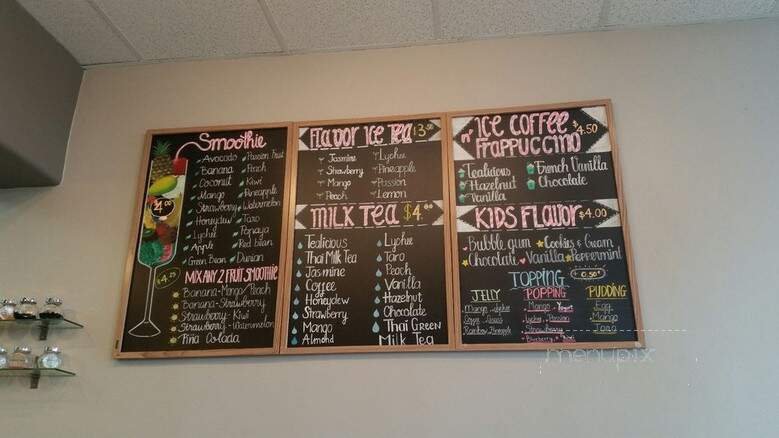 Smoothie
Avocado Passion Fruit
Banana Peach
Coconut Kiwi
Mango Pineapple
Strawberry Watermelon
Honeydew Taro
Lychee Papaya
Apple Red bean
Green Bean Durian
$4.00
$4.25
MIX ANY 2 FRUIT SMOOTHIE
Banana-Mango/Peach
Banana-Strawberry
Strawberry-Kiwi
Strawberry-Watermelon
Piña Colada
Flavor Ice Tea $3.50
Jasmine Lychee
Strawberry Pineapple
Mango Passion
Peach Lemon
MILK TEA $4.00
Tealicious Lychee
Thai Milk Tea Taro
Jasmine Peach
Coffee Vanilla
Honeydew Hazelnut
Strawberry Chocolate
Mango Thai Green
Almond Milk Tea
ICE COFFEE
n' FRAPPUCCINO $4.50
Tealicious French Vanilla
Hazelnut Chocolate
Vanilla
KIDS FLAVOR $4.00
Bubble gum Cookies & Cream
Chocolate Vanilla Peppermint
TOPPING 0.50¢
JELLY POPPING PUDDING
Mango Lychee Mango Yogurt Egg
Coffee Lychee Passion Mango
Rainbow Pineapple Strawberry Taro
Blueberry Kiwi
menupix